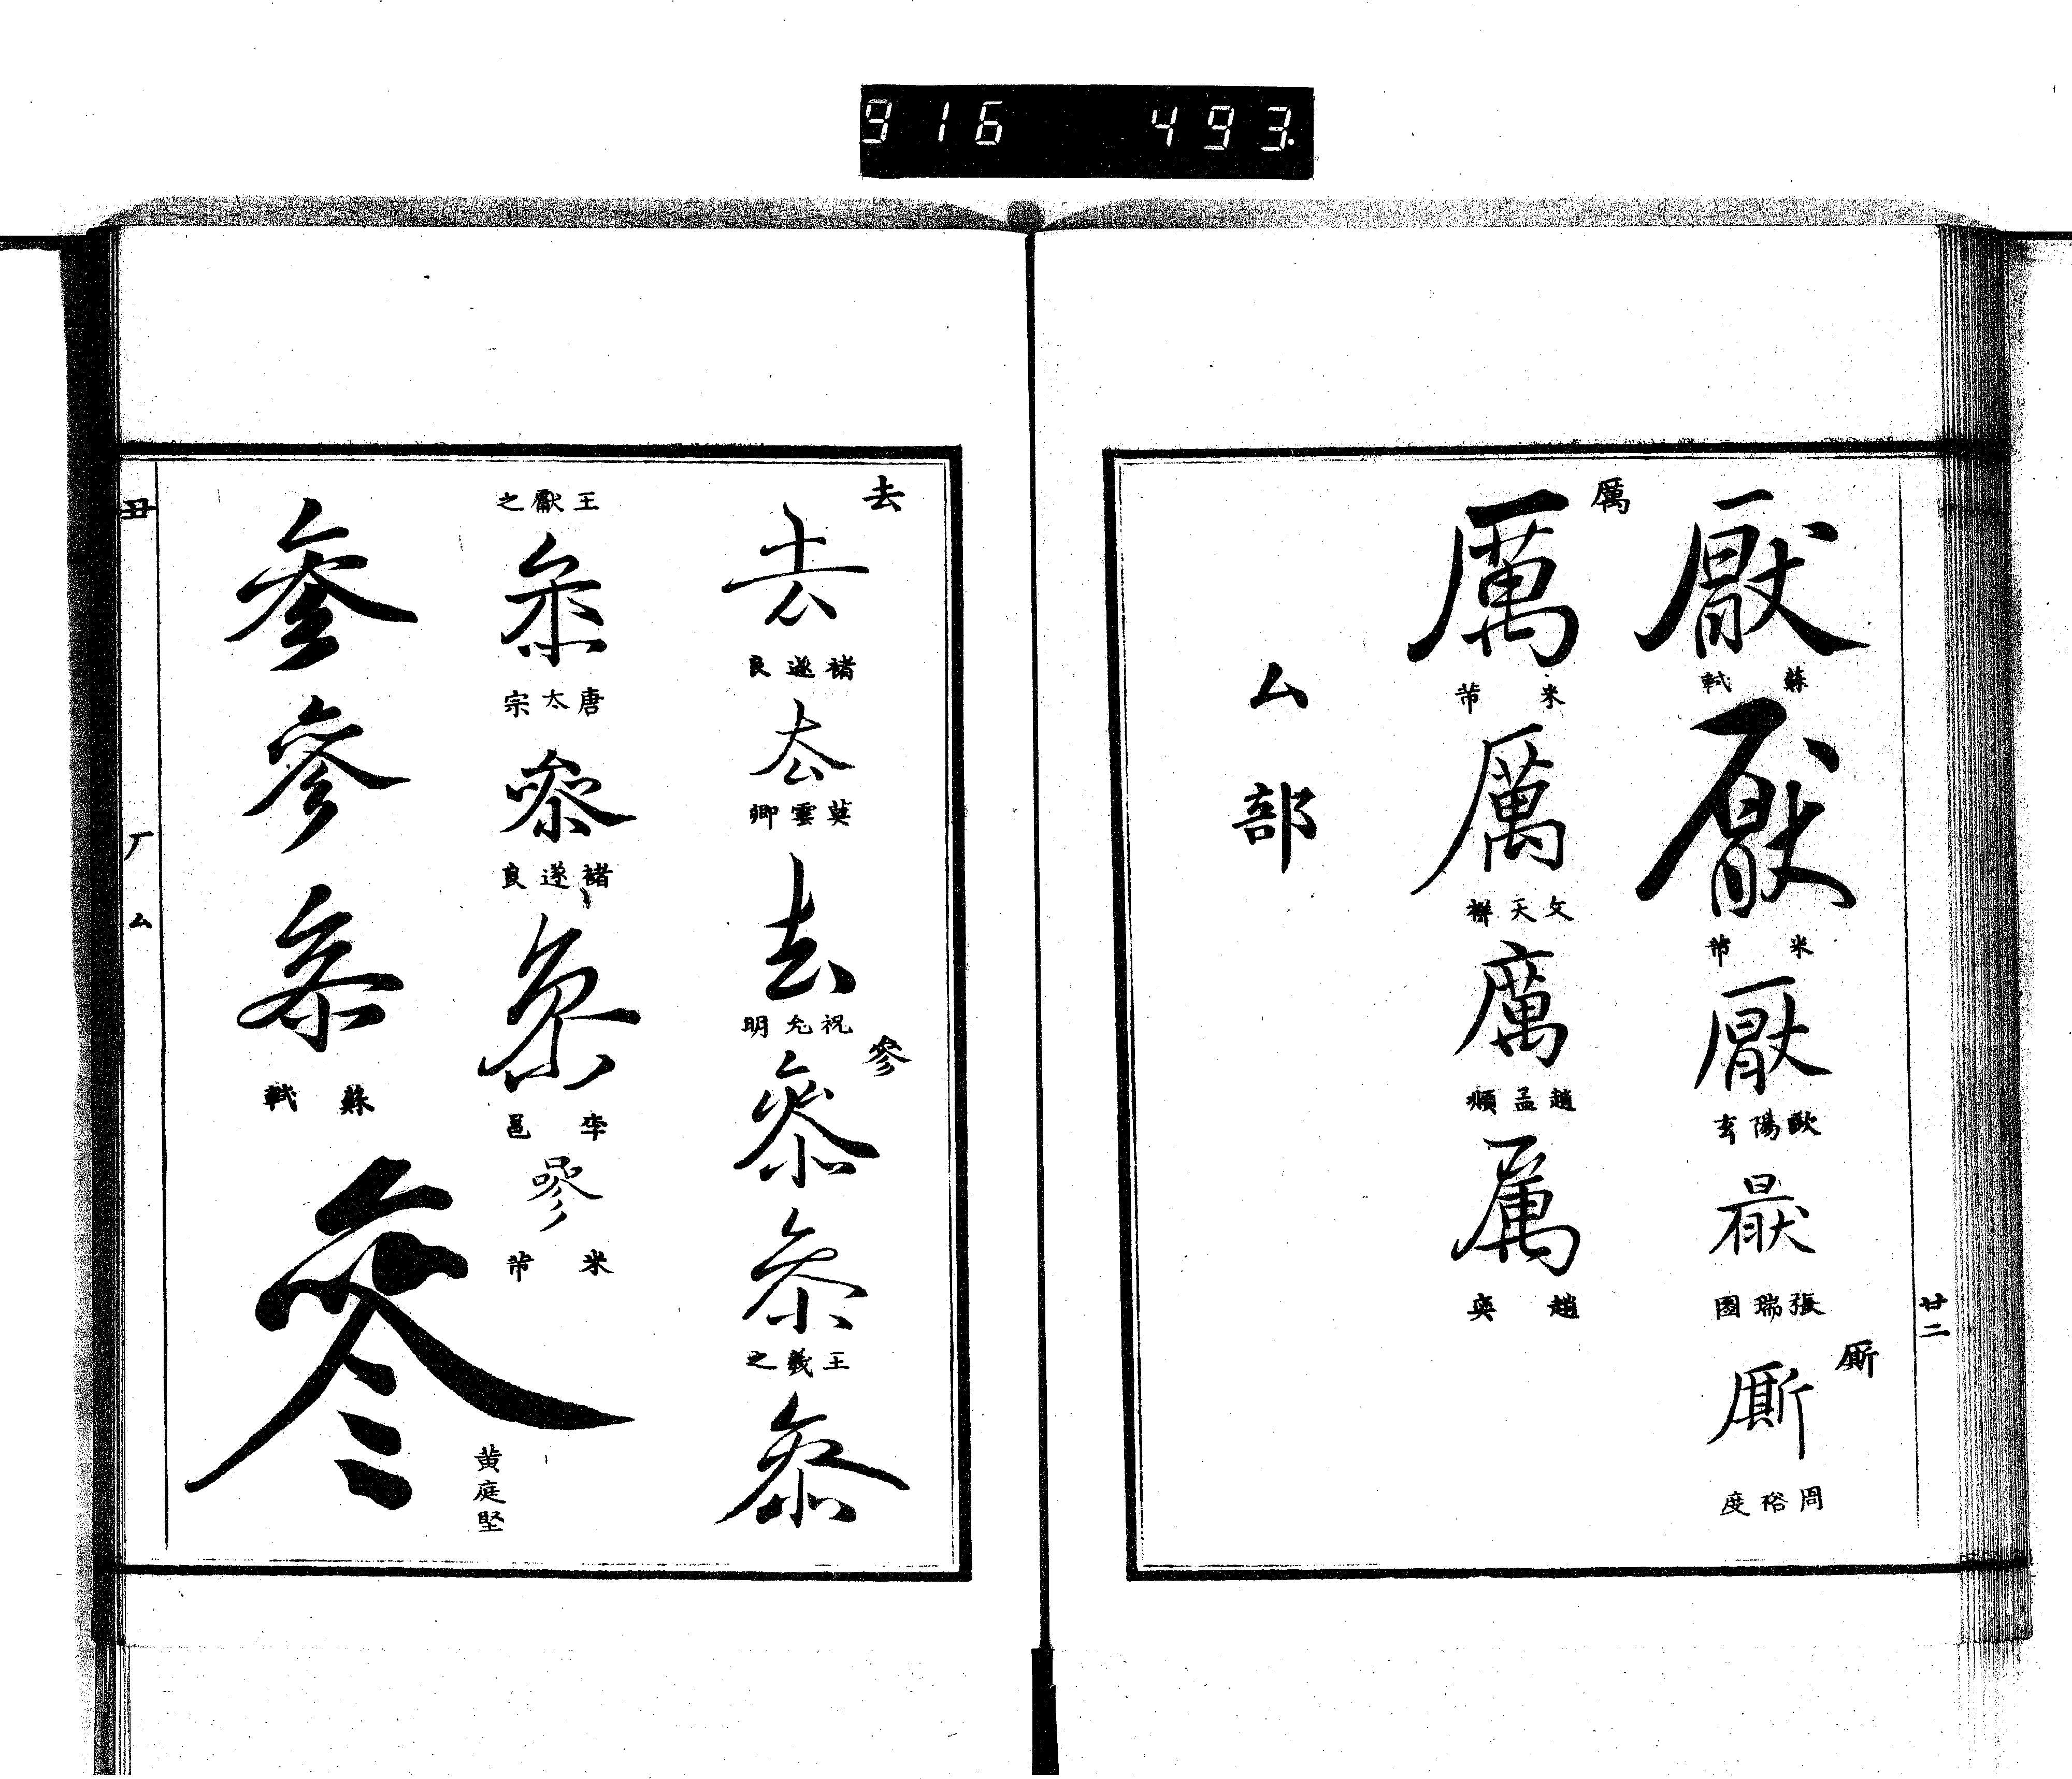 916 493
廿二
厭
蘇軾
厭
米芾
厭
歐陽玄
厭
張瑞圖
厮
厮
周裕度
厲
厲
米芾
厲
文天祥
厲
趙孟頫
厲
趙奕
厶部
去
去
褚遂良
去
莫雲卿
去
祝允明
參
參
參
王羲之
參
王獻之
參
唐太宗
參
褚遂良
參
李邕
參
米芾
參
參
參
蘇軾
參
黃庭堅
丑
厂
厶